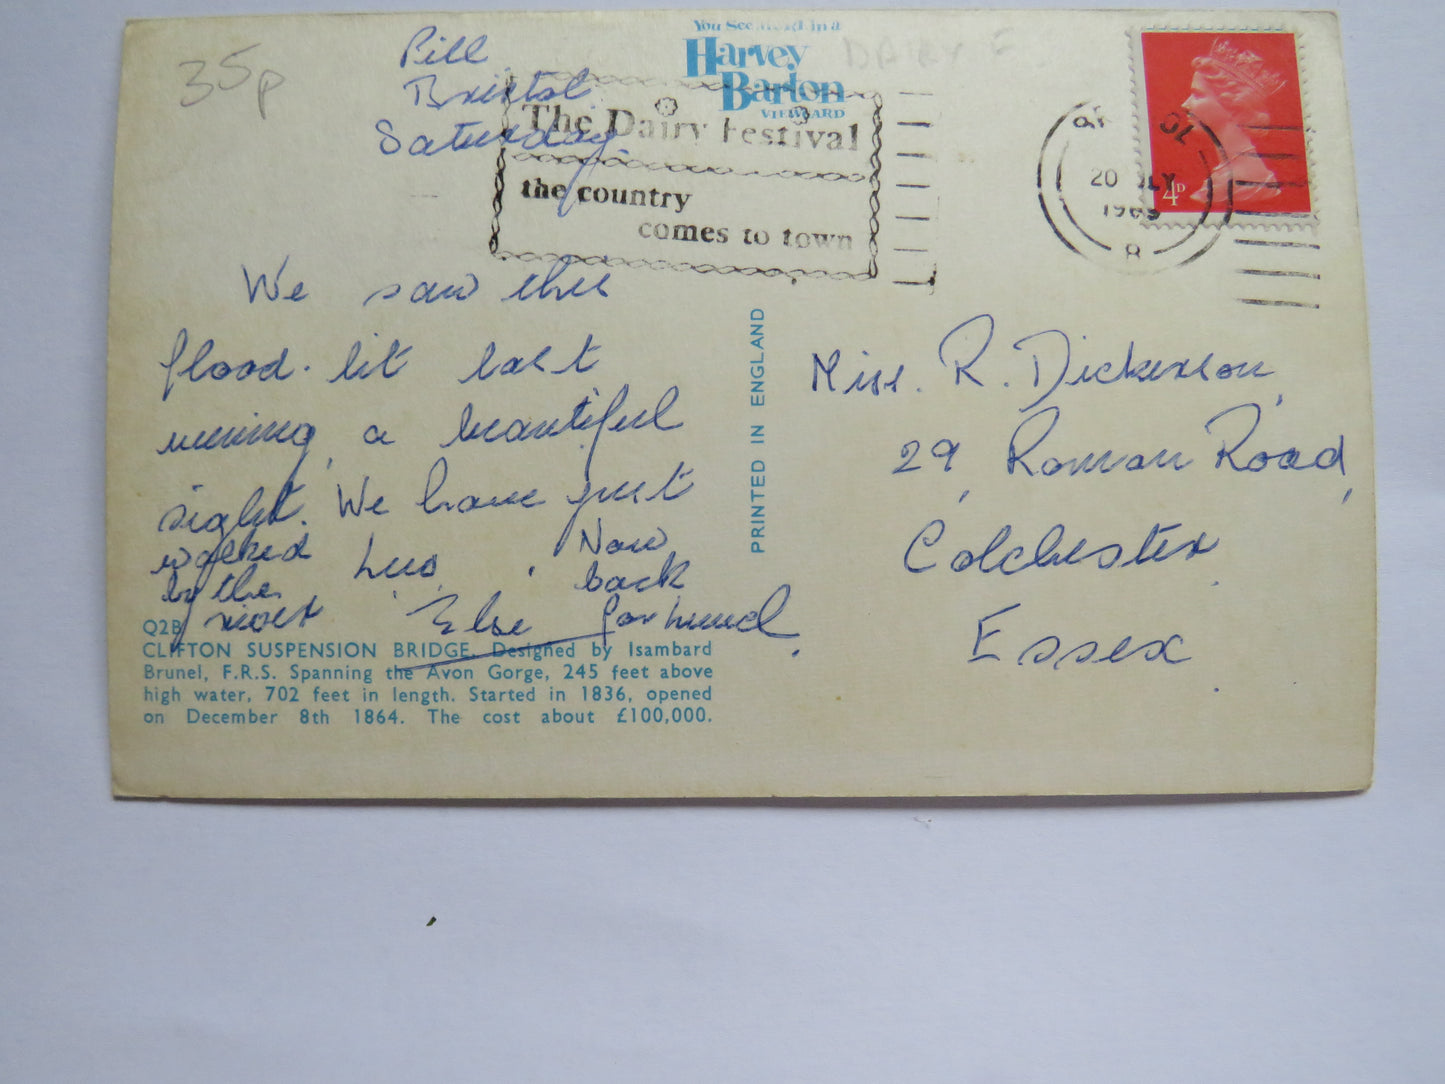 35p
Pill
Bristol
Saturday.
You See in a
Harvey
Barton
VIEWCARD
DAIRY F
The Dairy Festival
the country
comes to town
BRISTOL
20 JLY
1969
B
4D
We saw this
flood-lit last
evening, a beautiful
sight. We have just
walked
by the
river
Now
back
Else
Miss. R. Dickenson,
29, Roman Road,
Colchester.
Essex.
PRINTED IN ENGLAND
Q2B
CLIFTON SUSPENSION BRIDGE. Designed by Isambard
Brunel, F.R.S. Spanning the Avon Gorge, 245 feet above
high water, 702 feet in length. Started in 1836, opened
on December 8th 1864. The cost about £100,000.